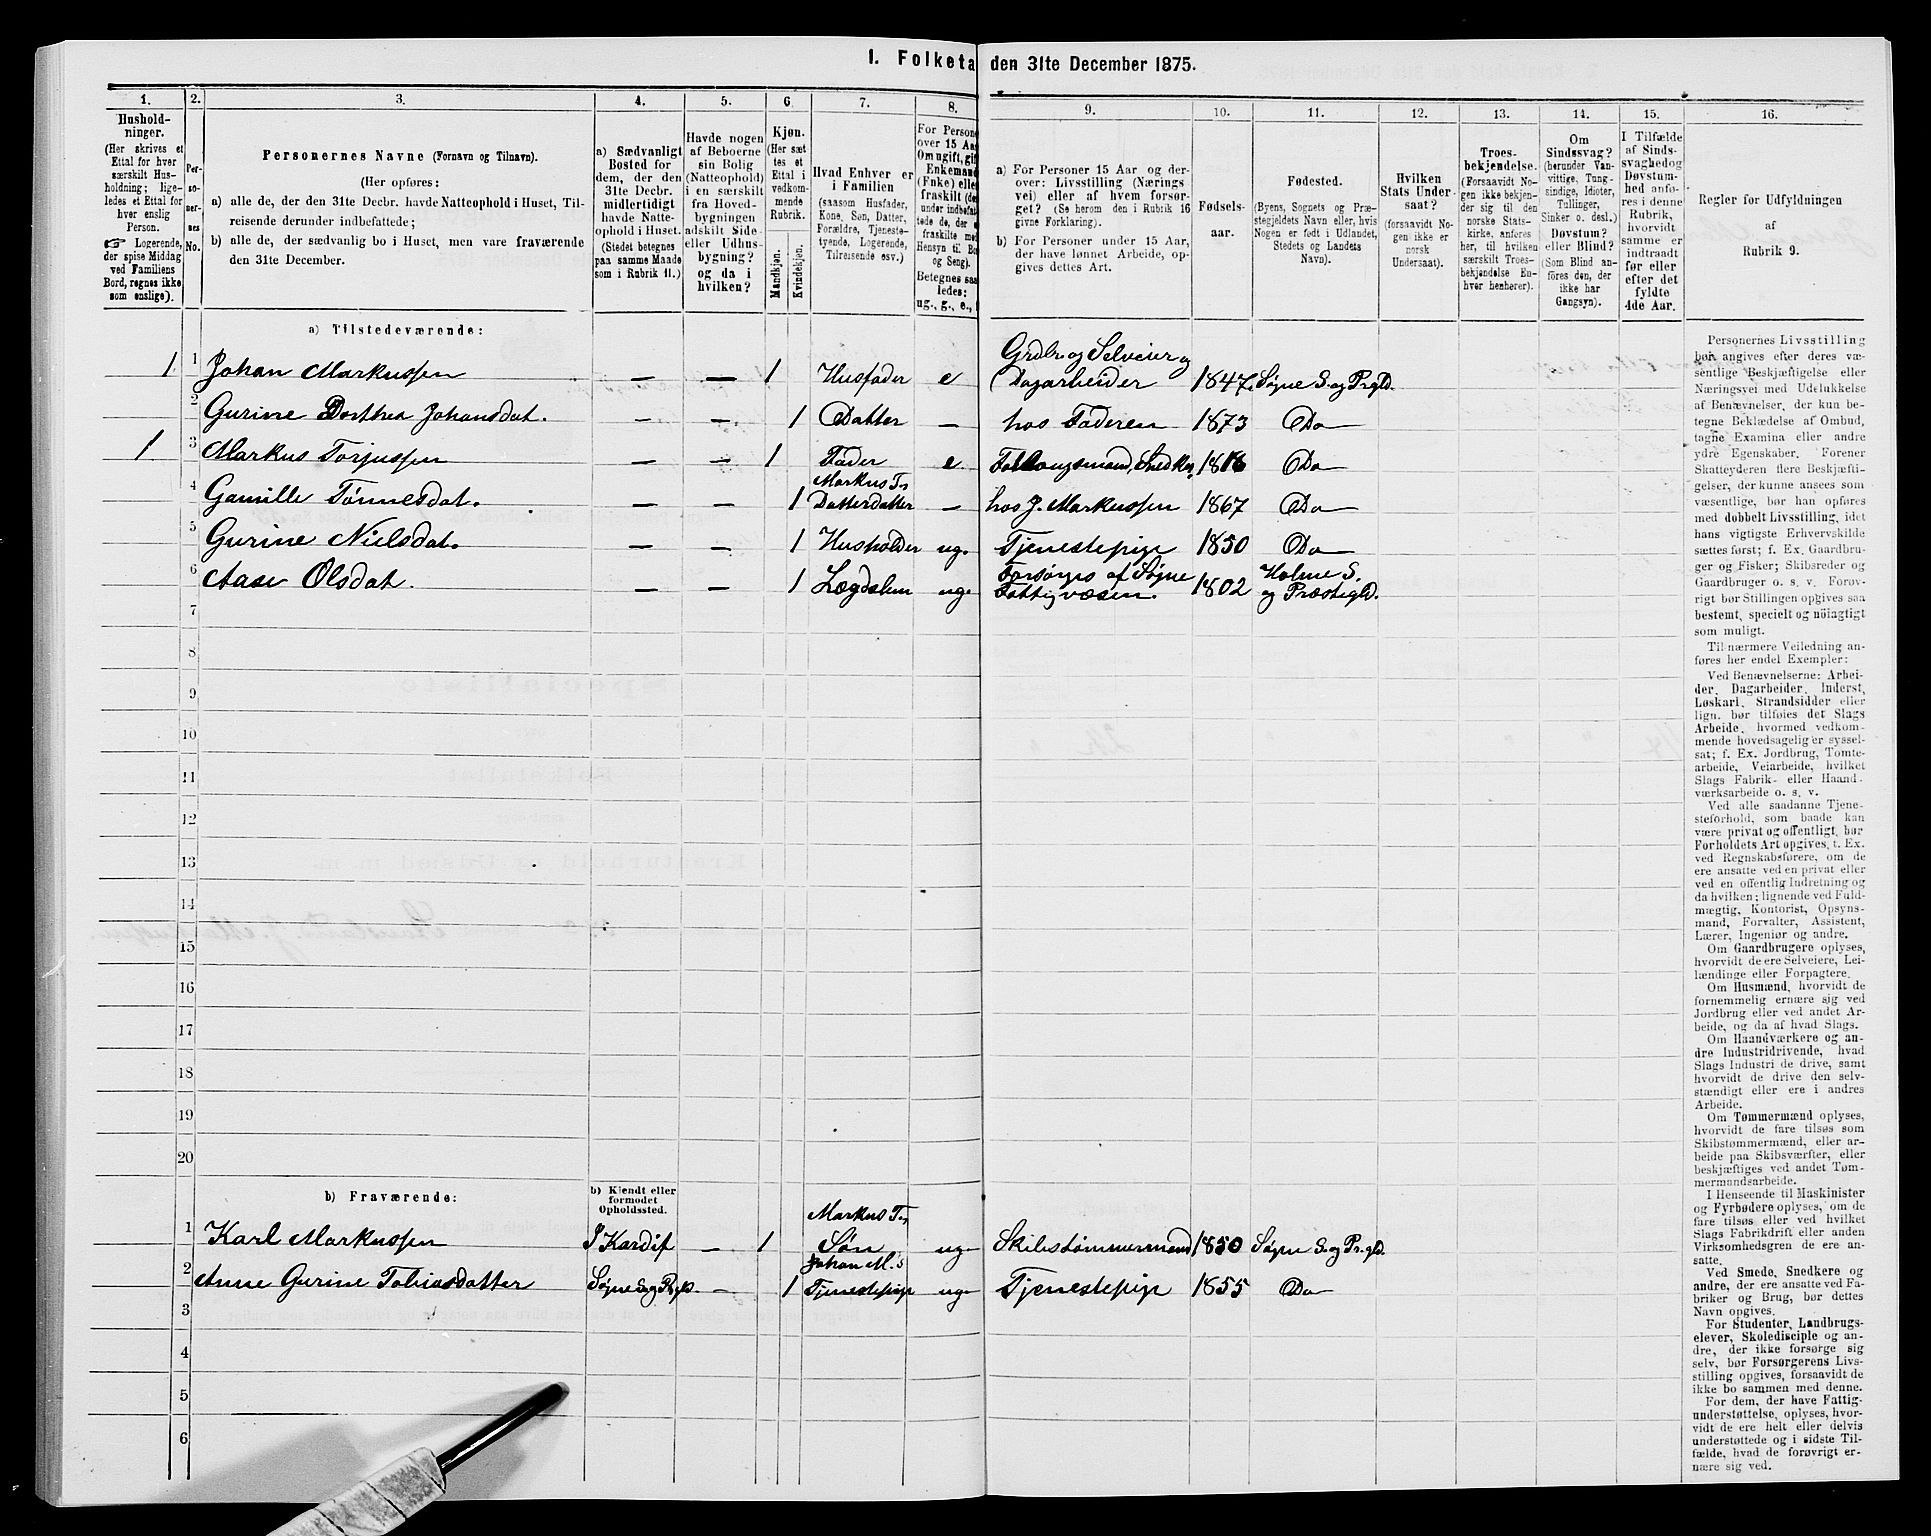 I. Folketa
den 31te December 1875.
1.
Hushold-
ninger.
(Her skrives et
Ettal for hver
særskilt Hus-
holdning; lige-
ledes et Ettal for
hver enslig
Person.
☞ Logerende,
der spise Middag
ved Familiens
Bord, regnes ikke
som enslige).
2.
Per-
so-
ner-
nes
No.
3.
Personernes Navne (Fornavn og Tilnavn).
(Her opføres:
a) alle de, der den 31te Decbr. havde Natteophold i Huset, Til-
reisende derunder indbefattede;
b) alle de, der sædvanlig bo i Huset, men vare fraværende
den 31te December.
4.
a) Sædvanligt
Bosted for
dem, der den
31te Decbr.
midlertidigt
havde Natte-
ophold i Huset.
(Stedet betegnes
paa samme Maade
som i Rubrik 11.)
5.
Havde nogen
af Beboerne
sin Bolig
(Natteophold)
i en særskilt
fra Hoved-
bygningen
adskilt Side-
eller Udhus-
bygning?
og da i
hvilken?
6.
Kjøn.
(Her sæt-
tes et
Ettal i
vedkom-
mende
Rubrik.
Mandkjøn.
Kvindekjøn.
7.
Hvad Enhver er
i Familien
(saasom Husfader,
Kone, Søn, Datter,
Forældre, Tjeneste-
tyende, Logerende,
Tilreisende osv.).
8.
For Person
over 15 Aa
Om ugift, gif
Enkemand
(Enke) elle
fraskilt (de
under indbefat
tede de, der e
fraskilte med
Hensyn til Bo
og Seng).
Betegnes saa
ledes:
ug., g., e.,
9.
a) For Personer 15 Aar og der-
over: Livsstilling (Nærings-
vei) eller af hvem forsør-
get? (Se herom den i Rubrik 16
givne Forklaring).
b) For Personer under 15 Aar,
der have lønnet Arbeide, op-
gives dettes Art.
10.
Fødsels-
aar.
11.
Fødested.
(Byens, Sognets og Præ-
stegjeldets Navn eller, hvis
Nogen er født i Udlandet,
Stedets og Landets
Navn).
12.
Hvilken
Stats Under-
saat?
(forsaavidt No-
gen ikke er
norsk
Undersaat).
13.
Troes-
bekjendelse.
(Forsaavidt No-
gen ikke bekjen-
der sig til den
norske Stats-
kirke, anføres
her, til hvilken
særskilt Troes-
bekjendelse En-
hver henhører).
14.
Om
Sindssvag?
(herunder Van-
vittige, Tung-
sindige, Idioter,
Tullinger,
Sinker o. desl.)
Døvstum?
eller Blind?
(Som Blind an-
føres den, der
ikke har
Gangsyn).
15.
I Tilfælde
af Sinds-
svaghed og
Døvstum-
hed anfø-
res i denne
Rubrik,
hvorvidt
samme er
indtraadt
før eller
efter det
fyldte
4de Aar.
16.
Regler for Udfyldningen
af
Rubrik 9.
a) Tilstedeværende:
1 1 Johan Markussen — — 1 Husfader e Grdbr og Selveier og
Dagarbeider 1847 Søgne S. og Prgld.
2 Gurine Dorthea Johansdat. — — 1 Datter — hos Faderen 1873 Do
1 3 Markus Torjussen — — 1 Fader e Føllaugsmand, Snedker 1816 Do
4 Gamille Tønnesdat. — — 1 Markus T.s
Datterdatter — hos J. Markussen 1867 Do
5 Gurine Nielsdat. — — 1 Husholder ug. Tjenestepige 1850 Do
6 Aase Olsdat. — — 1 Lægdslem ug. Forsørges af Søgne
Fattigvæsen. 1802 Holme S.
og Præstegld.
7
8
9
10
11
12
13
14
15
16
17
18
19
20
b) Fraværende:
b) Kjendt eller
formodet
Opholdssted.
1 Karl Markussen I Kardif — 1 Markus T.s
Søn ug Skibstømmermand 1850 Søgne S. og Pr.gld.
2 Anne Gurine Tobiasdatter Søgne S og Prgld. — 1 Johan M.s
Tjenestepige ug Tjenestepige 1855 Do
3
4
5
6
Personernes Livsstilling
bør angives efter deres væ-
sentlige Beskjæftigelse eller
Næringsvei med Udelukkelse
af Benævnelser, der kun be-
tegne Beklædelse af Ombud,
tagne Examina eller andre
ydre Egenskaber. Forener
Skatteyderen flere Beskjæfti-
gelser, der kunne ansees som
væsentlige, bør han opføres
med dobbelt Livsstilling, idet
hans vigtigste Erhvervskilde
sættes først; f. Ex. Gaardbru-
ger og Fisker; Skibsreder og
Gaardbruger o. s. v. Forøv-
rigt bør Stillingen opgives saa
bestemt, specielt og nöiagtigt
som muligt.
Til nærmere Veiledning an-
føres her endel Exempler:
Ved Benævnelserne: Arbei-
der, Dagarbeider, Inderst,
Løskarl, Strandsidder eller
lign. bør tilføies det Slags
Arbeide, hvormed vedkom-
mende hovedsagelig er syssel-
sat; f. Ex. Jordbrug, Tomte-
arbeide, Veiarbeide, hvilket
Slags Fabrik- eller Haand-
værksarbeide o. s. v.
Ved alle saadanne Tjene-
steforhold, som baade kan
være privat og offentligt, bør
Forholdets Art opgives, f. Ex.
ved Regnskabsførere, om de
ere ansatte ved en privat eller
ved en offentlig Indretning og
da hvilken; lignende ved Fuld-
mægtig, Kontorist, Opsyns-
mand, Forvalter, Assistent,
Lærer, Ingeniør og andre.
Om Gaardbrugere oplyses,
hvorvidt de ere Selveiere, Lei-
lændinge eller Forpagtere.
Om Husmænd, hvorvidt de
fornemmelig ernære sig ved
Jordbrug eller ved andet Ar-
beide, og da af hvad Slags.
Om Haandværkere og an-
dre Industridrivende, hvad
Slags Industri de drive, samt
hvorvidt de drive den selv-
stændigt eller ere i andres
Arbeide.
Om Tømmermænd oplyses,
hvorvidt de fare tilsøs som
Skibstømmermænd, eller ar-
beide paa Skibsværfter, eller
beskjæftiges ved andet Tøm-
mermandsarbeide.
I Henseende til Maskinister
og Fyrbødere oplyses, om de
fare tilsøs eller ved hvilket
Slags Fabrikdrift eller anden
Virksomhedsgren de ere an-
satte.
Ved Smede, Snedkere og
andre, der ere ansatte ved Fa-
briker og Brug, bør dettes
Navn opgives.
For Studenter, Landbrugs-
elever, Skoledisciple og an-
dre, der ikke forsørge sig
selv, bør Forsørgerens Livs-
stilling opgives, forsaavidt de
ikke bo sammen med denne.
For dem, der have Fattig-
understøttelse, oplyses, hvor-
vidt de ere helt eller delvis
understøttede og i sidste Til-
fælde, hvad de forøvrigt er-
nære sig ved.